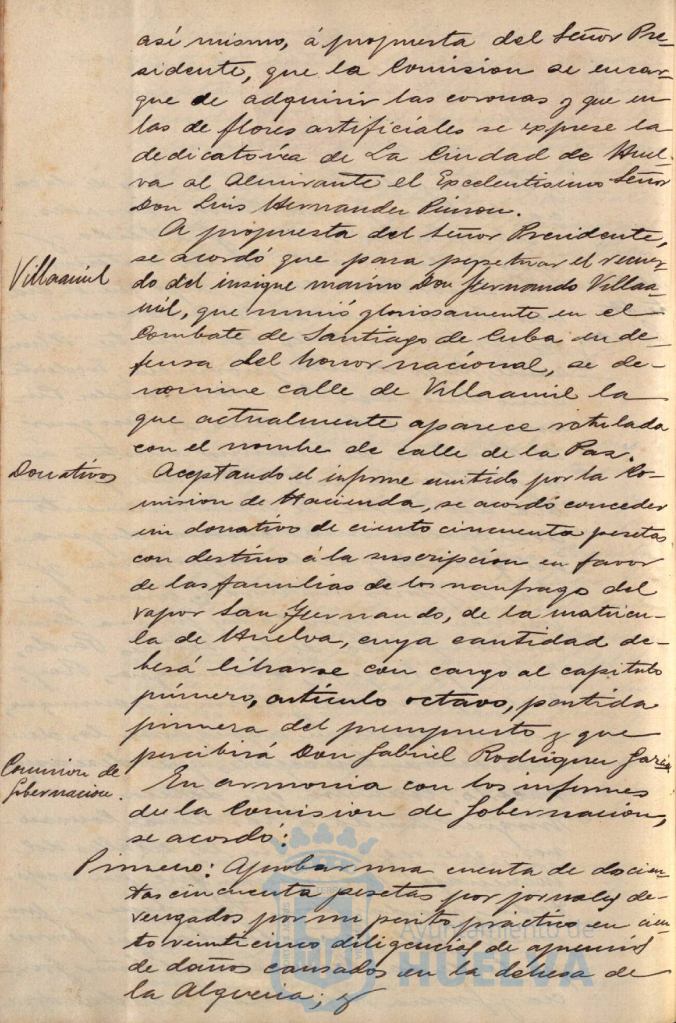 así mismo, á propuesta del Señor Pre-
sidente, que la Comision se encar-
gue de adquirir las coronas y que en
las de flores artificiales se exprese la
dedicatoria de La Ciudad de Huel-
va al Almirante el Excelentisimo Señor
Don Luis Hernandez Pinzon.
A propuesta del Señor Presidente,
Villaamil
se acordó que para perpetuar el recuer-
do del insigne marino Don Fernando Villaa-
mil, que murió gloriosamente en el
Combate de Santiago de Cuba en de-
fensa del honor nacional, se de-
nomine calle de Villaamil la
que actualmente aparece rotulada
con el nombre de calle de la Paz.
Donativos
Aceptando el informe emitido por la Co-
mision de Hacienda, se acordó conceder
un donativo de ciento cincuenta pesetas
con destino á la suscripcion en favor
de las familias de los naufrago del
vapor San Fernando, de la matricu-
la de Huelva, cuya cantidad de-
berá librarse con cargo al capitulo
primero, artículo octavo, partida
primera del presupuesto y que
percibirá Don Gabriel Rodriguez Garcia
Comision de
Gobernacion.
En armonia con los informes
de la Comision de Gobernacion,
se acordo:
Primero: Aprobar una cuenta de docien-
tas cincuenta pesetas por jornales de-
vengados por un perito práctico en cien-
to veinticinco diligencias de aprecios
de daños causados en la dehesa de
la Alqueria; y
Ayuntamiento de
HUELVA